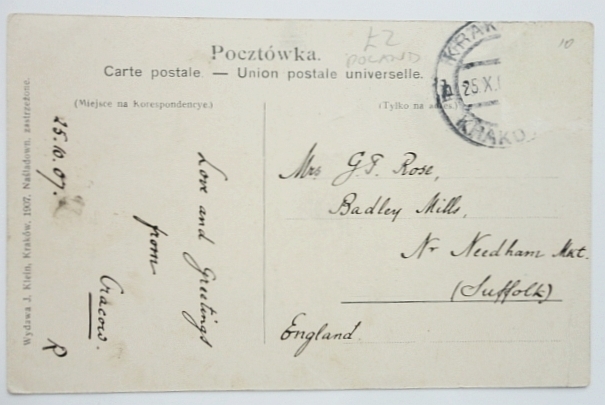 £2
POLAND
10
Pocztówka.
Carte postale. — Union postale universelle.
(Miejsce na Korespondencye.)
(Tylko na
KRAK
25.X.
KRAKO
Wydawa J. Klein, Kraków, 1907. Naśladown. zastrzeżone.
25.10.07.
Love and Greetings
from
Cracow.
R
Mrs G.F. Rose,
Badley Mills,
Nr Needham Mkt.
(Suffolk)
England.